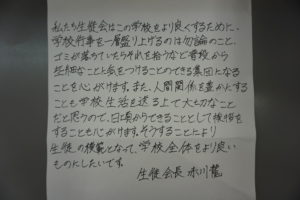 私たち生徒会はこの学校をより良くするために、
学校行事を一層盛り上げるのは勿論のこと、
ゴミが落ちていたらそれを拾うなど普段から
些細なことに気をつけることのできる集団になる
ことも心がけます。また、人間関係を豊かにする
ことも学校生活を送る上で大切なこと
だと思うので、日頃からできることとして挨拶を
することも心がけます。そうすることにより
生徒の模範となって、学校全体をより良い
ものにしたいです。
生徒会長 水川龍